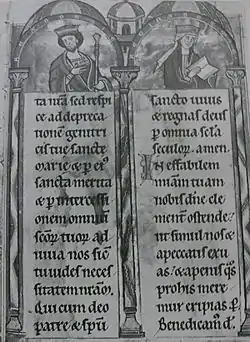 ta nr̃a sed respi
ce ad depreca
tionẽ genitri
cis tue sancte
marie & ꝑ eiꝰ
sancta merita
& ꝑ intercessi
onem omniũ
sc̃or̃ tuor̃ ad
iuua nos siẽ
tu uides neces
sitatem nr̃am.
Qui cum deo
patre & sp̃u
sancto uiuis
& regnas deus
ꝑ omnia sc̃la
seculor̃. amen.
Ineffabilem
mĩam tuam
nobis dñe cle
menter ostende.
ut simul nos &
a peccatis exu
as. & a penis qs
pro his mere
mur eripias ꝑ
Benedicam᷒ d.